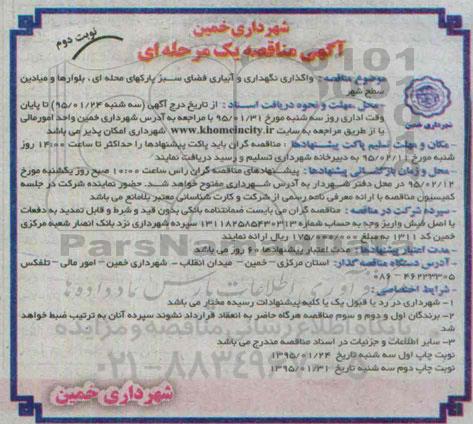 شهرداری خمین
آگهی مناقصه یک مرحله ای
نوبت دوم
موضوع مناقصه : واگذاری نگهداری و آبیاری فضای سبز پارکهای محله ای ، بلوارها و میادین
سطح شهر
محل ،مهلت و نحوه دریافت اسناد : از تاریخ درج آگهی (سه شنبه ۹۵/۰۱/۲۴) تا پایان
وقت اداری روز سه شنبه مورخ ۹۵/۰۱/۳۱ با مراجعه به آدرس شهرداری خمین واحد امورمالی
یا از طریق مراجعه به سایت www.khomeincity.ir شهرداری امکان پذیر می باشد
مکان و مهلت تسلیم پاکت پیشنهادها : مناقصه گران باید پاکت پیشنهادها را حداکثر تا ساعت ۱۴:۰۰ روز
شنبه مورخ ۹۵/۰۲/۱۱ به دبیرخانه شهرداری تسلیم و رسید دریافت نمایند
محل و زمان بازگشائی پیشنهادها : پیشنهادهای مناقصه گران راس ساعت ۱۰:۰۰ صبح روز یکشنبه مورخ
۹۵/۰۲/۱۲ در محل دفتر شهردار به آدرس شهرداری مفتوح خواهد شد. حضور نماینده شرکت در جلسه
کمیسیون مناقصه با ارائه معرفی نامه رسمی از شرکت و کارت شناسائی معتبر بلامانع می باشد
سپرده شرکت در مناقصه : مناقصه گران می بایست ضمانتنامه بانکی بدون قید و شرط و قابل تمدید به دفعات
یا اصل فیش واریز وجه به حساب شماره ۱۳۱۱۸۲۵۸۵۴۳۰۲۱۳ سپرده شهرداری نزد بانک انصار شعبه مرکزی
خمین کد ۱۳۱۱ به مبلغ ۱۷۵/۰۰۰/۰۰۰ ریال ارائه نمایند
مدت اعتبار پیشنهادها : مدت اعتبار پیشنهادها ۶۰ روز می باشد
آدرس دستگاه مناقصه گذار: استان مرکزی – خمین – میدان انقلاب – شهرداری خمین – امور مالی – تلفکس
۴۶۲۲۳۳۰۵ - ۰۸۶
شرایط اختصاصی :
۱- شهرداری در رد یا قبول یک یا کلیه پیشنهادات رسیده مختار می باشد
۲- برندگان اول و دوم و سوم مناقصه هرگاه حاضر به انعقاد قرارداد نشوند سپرده آنان به ترتیب ضبط خواهد
شد
۳- سایر اطلاعات و جزئیات در اسناد مناقصه مندرج می باشد
نوبت چاپ اول سه شنبه تاریخ ۱۳۹۵/۰۱/۲۴
نوبت چاپ دوم سه شنبه تاریخ ۱۳۹۵/۰۱/۳۱
شهرداری خمین
شهرداری خمین